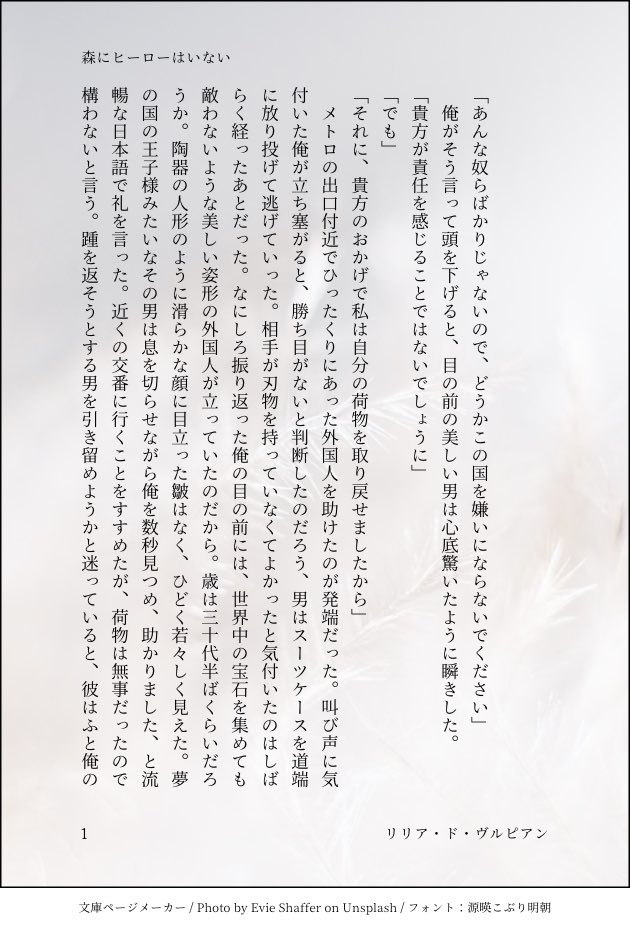 森にヒーローはいない
「あんな奴らばかりじゃないので、どうかこの国を嫌いにならないでください」
俺がそう言って頭を下げると、目の前の美しい男は心底驚いたように瞬きした。
「貴方が責任を感じることではないでしょうに」
「でも」
「それに、貴方のおかげで私は自分の荷物を取り戻せましたから」
メトロの出口付近でひったくりにあった外国人を助けたのが発端だった。叫び声に気
付いた俺が立ち塞がると、勝ち目がないと判断したのだろう、男はスーツケースを道端
に放り投げて逃げていった。相手が刃物を持っていなくてよかったと気付いたのはしば
らく経ったあとだった。なにしろ振り返った俺の目の前には、世界中の宝石を集めても
敵わないような美しい姿形の外国人が立っていたのだから。歳は三十代半ばくらいだろ
うか。陶器の人形のように滑らかな顔に目立った皺はなく、ひどく若々しく見えた。夢
の国の王子様みたいなその男は息を切らせながら俺を数秒見つめ、助かりました、と流
暢な日本語で礼を言った。近くの交番に行くことをすすめたが、荷物は無事だったので
構わないと言う。踵を返そうとする男を引き留めようかと迷っていると、彼はふと俺の
リリア・ド・ヴルピアン
1
文庫ページメーカー / Photo by Evie Shaffer on Unsplash / フォント：源暎こぶり明朝